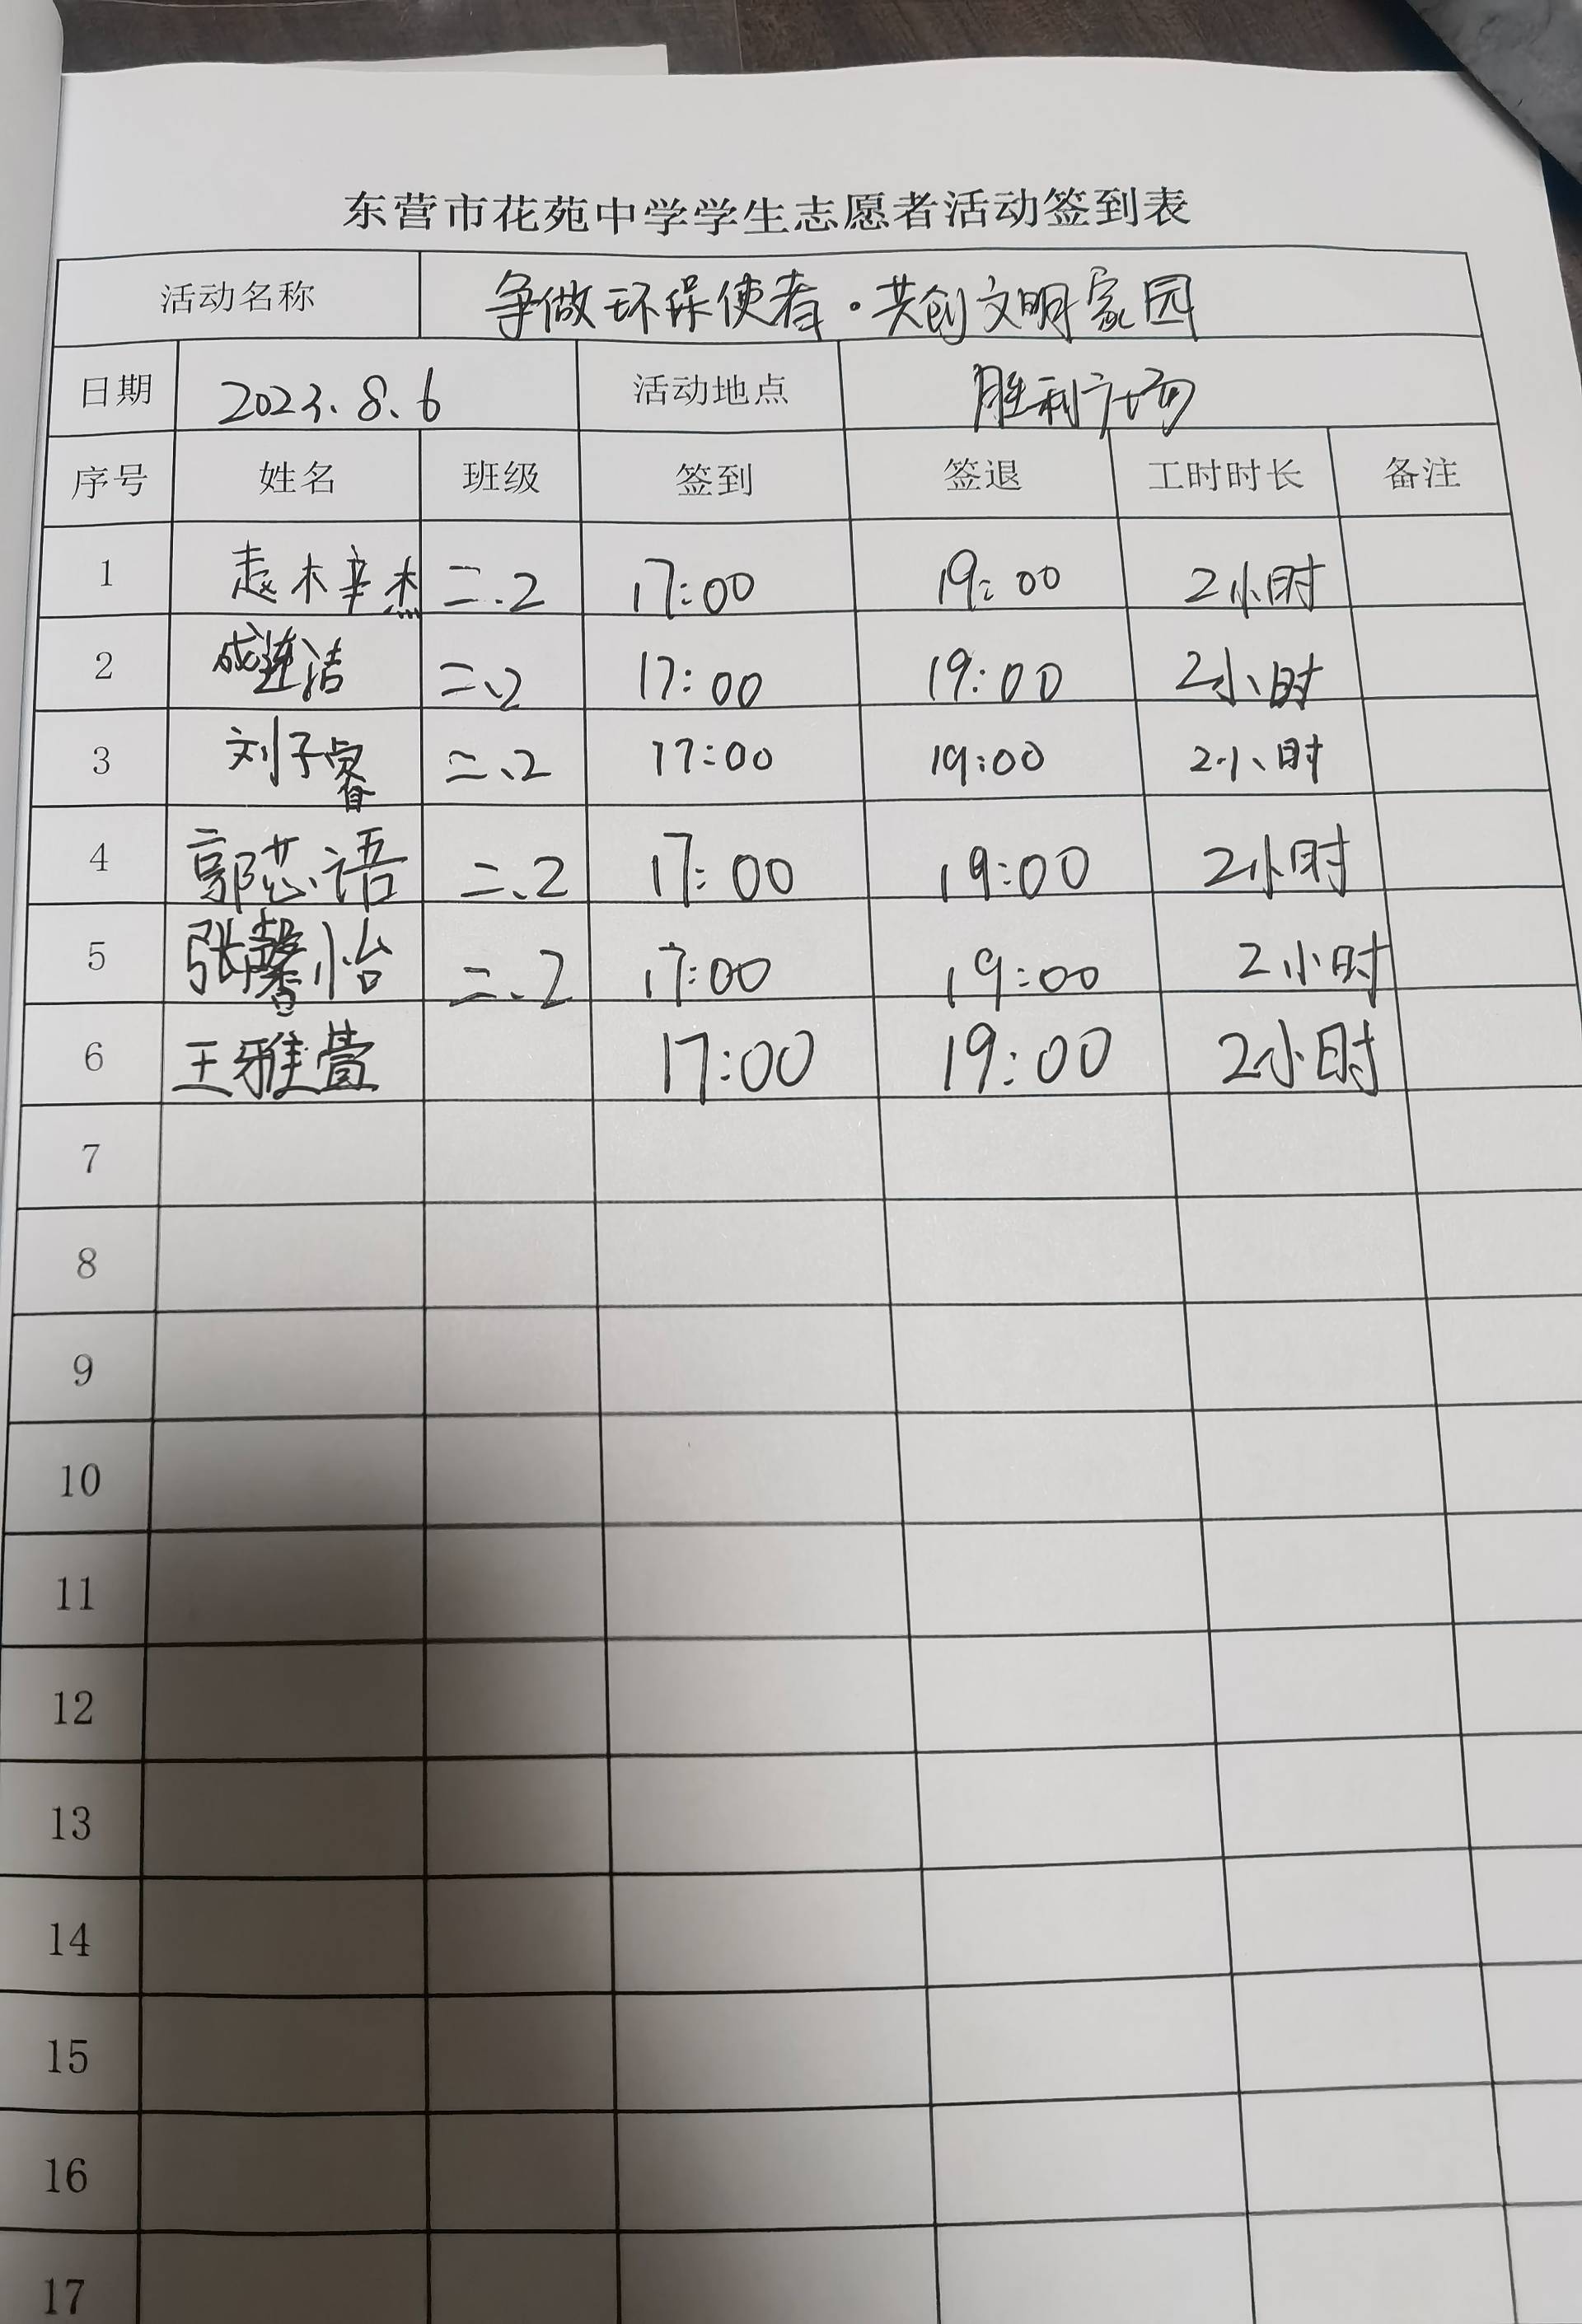 东营市花苑中学学生志愿者活动签到表
活动名称 争做环保使者·共创文明家园
日期 2023.8.6 活动地点 胜利广场
序号 姓名 班级 签到 签退 工时时长 备注
1 赵木辛杰 二.2 17:00 19:00 2小时
2 成莲洁 二、2 17:00 19:00 2小时
3 刘子睿 二、2 17:00 19:00 2小时
4 郭芯语 二、2 17:00 19:00 2小时
5 张馨怡 二、2 17:00 19:00 2小时
6 王雅萱 17:00 19:00 2小时
7
8
9
10
11
12
13
14
15
16
17